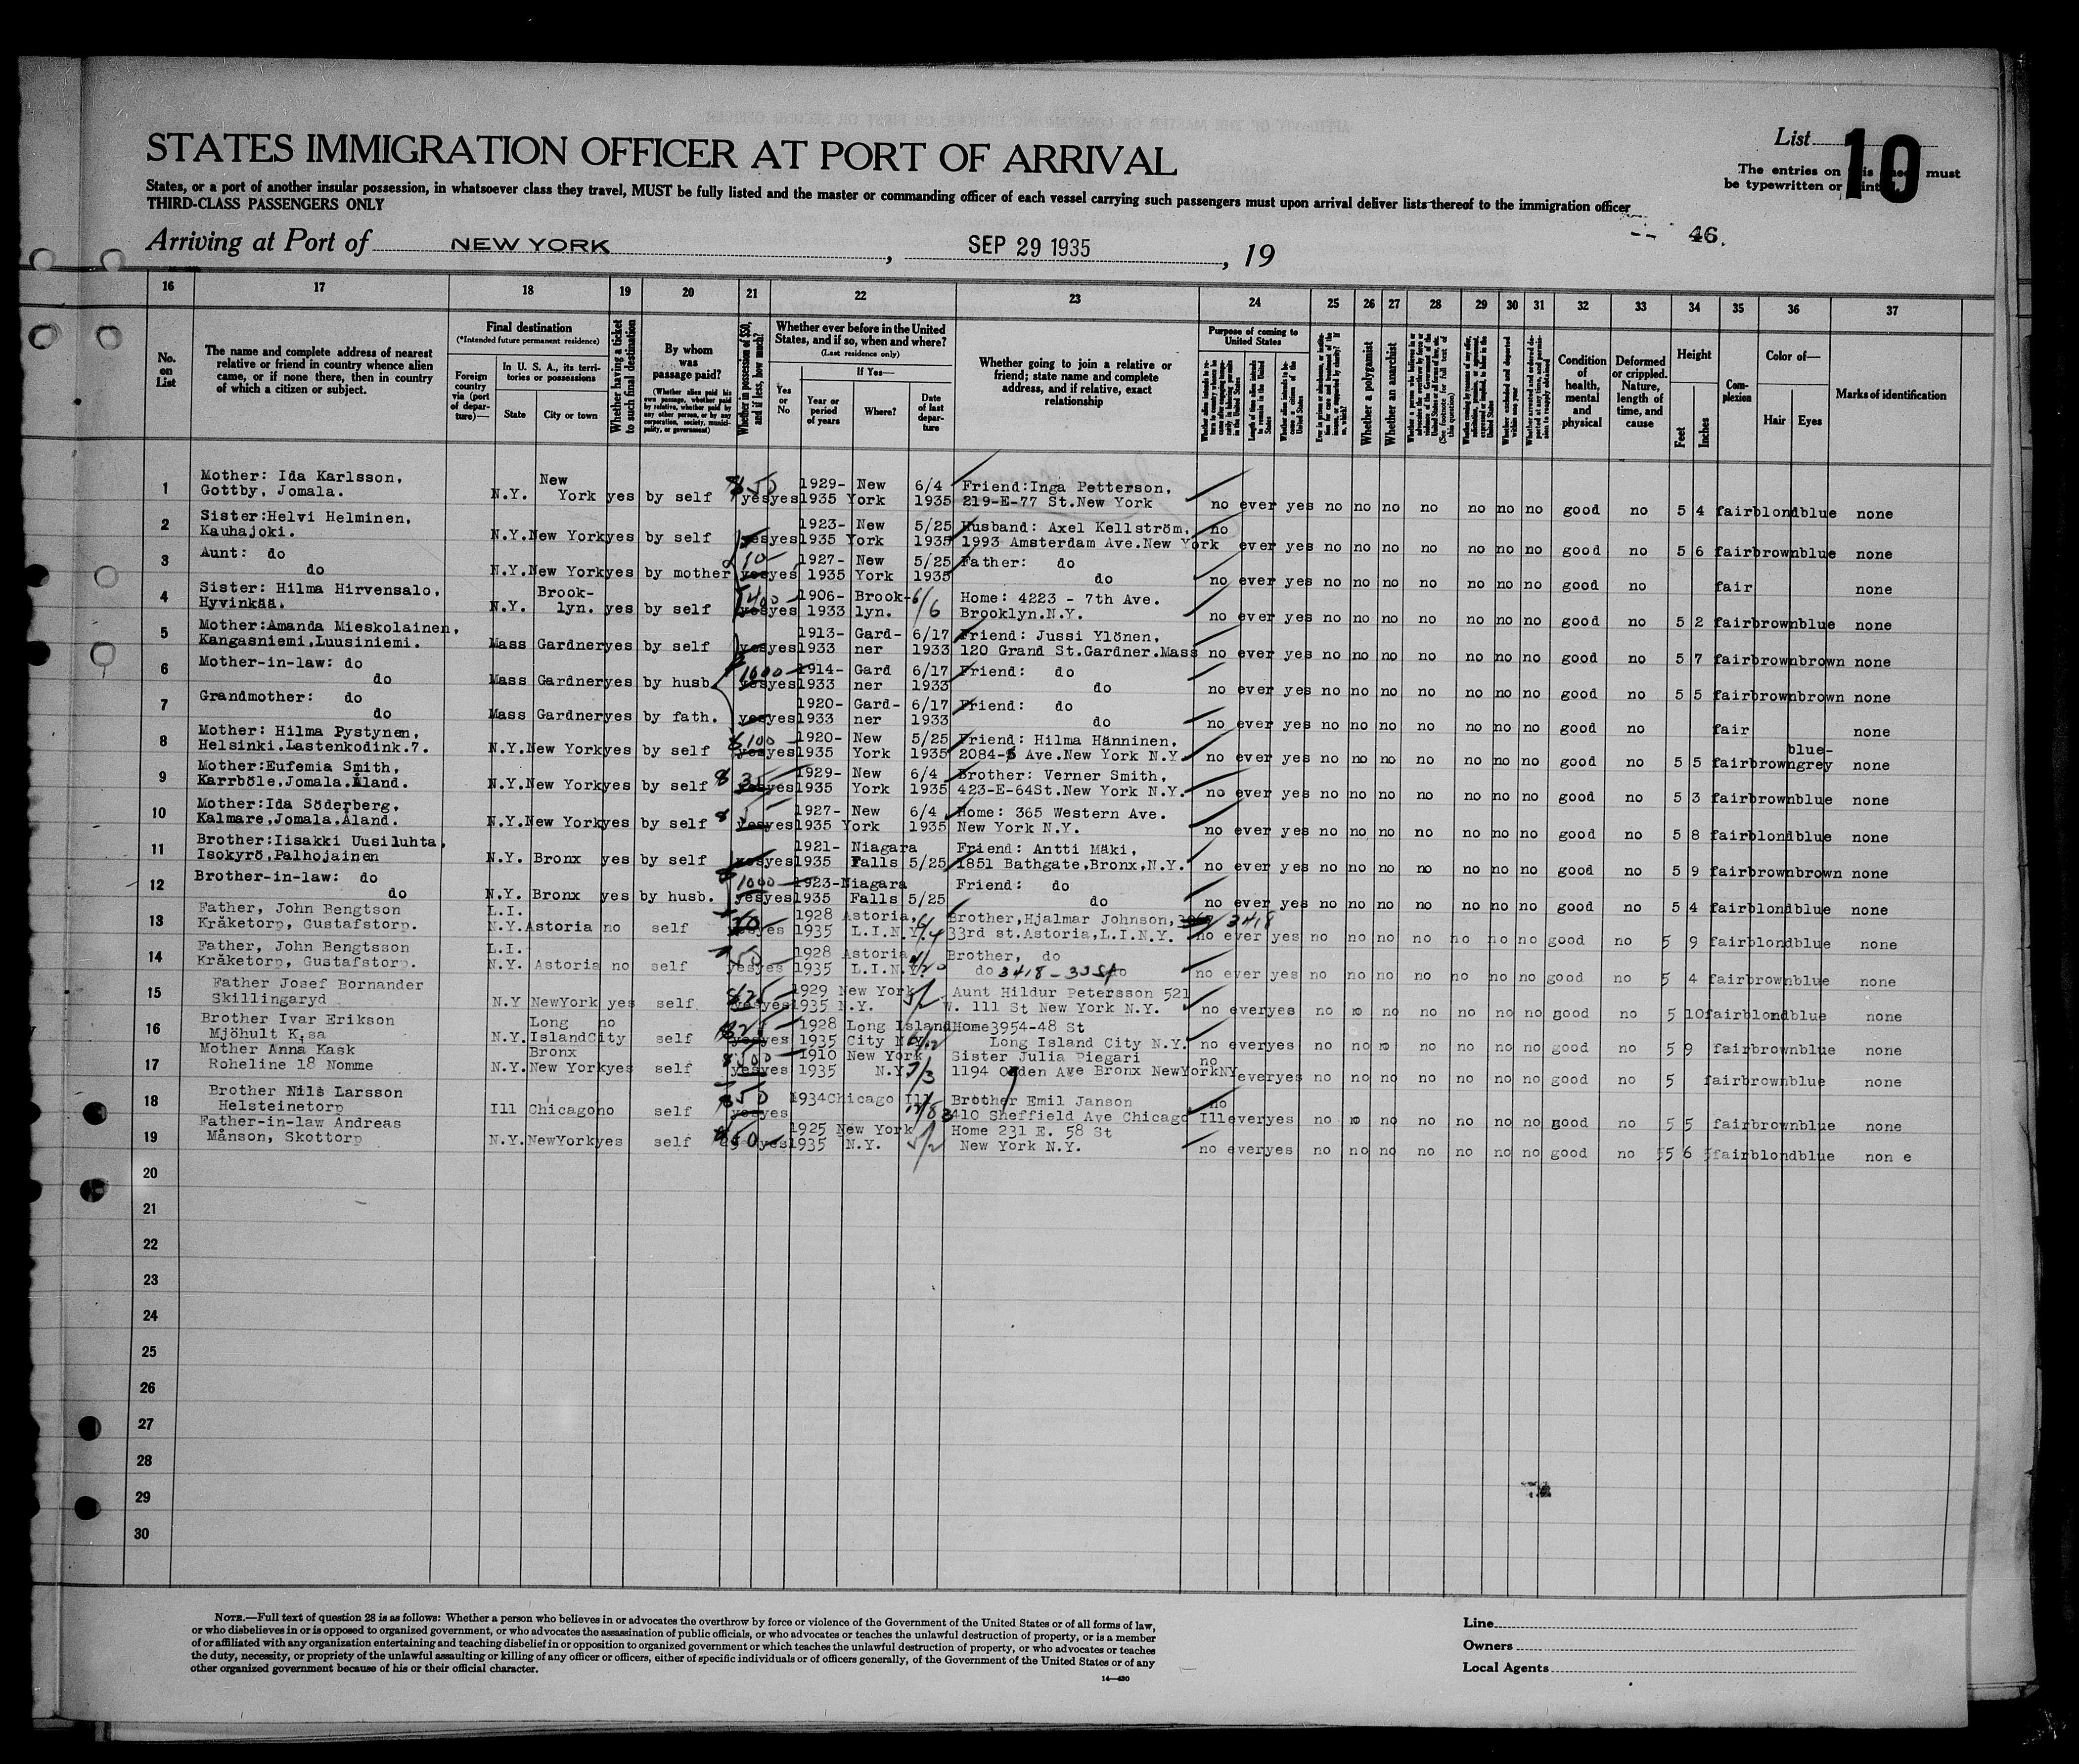 STATES IMMIGRATION OFFICER AT PORT OF ARRIVAL
List 10
The entries on must
be typewritten or
States, or a port of another insular possession, in whatsoever class they travel, MUST be fully listed and the master or commanding officer of each vessel carrying such passengers must upon arrival deliver lists thereof to the immigration officer
THIRD-CLASS PASSENGERS ONLY
46.
Arriving at Port of NEW YORK, SEP 29 1935, 19
16 17 18 19 20 21 22 23 24 25 26 27 28 29 30 31 32 33 34 35 36 37
No. on List
The name and complete address of nearest relative or friend in country whence alien came, or if none there, then in country of which a citizen or subject.
Final destination
(*Intended future permanent residence)
Foreign country via (port of departure)—
In U. S. A., its territories or possessions
State City or town
Whether having a ticket to such final destination
By whom was passage paid?
(Whether alien paid his own passage, whether paid by relative, whether paid by any other person, or by any corporation, society, municipality, or government)
Whether in possession of $50, and if less, how much?
Whether ever before in the United States, and if so, when and where?
(Last residence only)
Yes or No
If Yes—
Year or period of years Where? Date of last departure
Whether going to join a relative or friend; state name and complete address, and if relative, exact relationship
Purpose of coming to United States
Whether a polygamist
Whether an anarchist
Condition of health, mental and physical
Deformed or crippled. Nature, length of time, and cause
Height
Feet Inches
Complexion
Color of—
Hair Eyes
Marks of identification
1 Mother: Ida Karlsson, New $50 1929- New 6/4 Friend:Inga Petterson,
Gottby, Jomala. N.Y. York yes by self yes yes 1935 York 1935 219-E-77 St.New York no ever yes no no no no no no no good no 5 4 fair blond blue none
2 Sister:Helvi Helminen, 1923- New 5/25 Husband: Axel Kellström, no
Kauhajoki. N.Y. New York yes by self yes yes 1935 York 1935 1993 Amsterdam Ave.New York ever yes no no no no no no no good no 5 6 fair brown blue none
3 Aunt: do 10 1927- New 5/25 Father: do
do N.Y. New York yes by mother yes yes 1935 York 1935 do no ever yes no no no no no no no good no fair none
4 Sister: Hilma Hirvensalo, Brook- $400 1906- Brook- 6/6 Home: 4223 - 7th Ave.
Hyvinkää. N.Y. lyn. yes by self yes yes 1933 lyn. Brooklyn.N.Y. no ever yes no no no no no no no good no 5 2 fair brown blue none
5 Mother:Amanda Mieskolainen, 1913- Gard- 6/17 Friend: Jussi Ylönen,
Kangasniemi,Luusiniemi. Mass Gardner yes by self yes yes 1933 ner 1933 120 Grand St.Gardner.Mass no ever yes no no no no no no no good no 5 7 fair brown brown none
6 Mother-in-law: do 1000 1914- Gard 6/17 Friend: do
do Mass Gardner yes by husb. yes yes 1933 ner 1933 do no ever yes no no no no no no no good no 5 5 fair brown brown none
7 Grandmother: do 1920- Gard- 6/17 Friend: do
do Mass Gardner yes by fath. yes yes 1933 ner 1933 do no ever yes no no no no no no no good no fair none
8 Mother: Hilma Pystynen, $100 1920- New 5/25 Friend: Hilma Hänninen, blue-
Helsinki.Lastenkodink.7. N.Y. New York yes by self yes yes 1935 York 1935 2084-5 Ave.New York N.Y. no ever yes no no no no no no no good no 5 5 fair brown grey none
9 Mother:Eufemia Smith, $35 1929- New 6/4 Brother: Verner Smith,
Karrböle.Jomala.Åland. N.Y. New York yes by self yes yes 1935 York 1935 423-E-64St.New York N.Y. no ever yes no no no no no no no good no 5 3 fair brown blue none
10 Mother:Ida Söderberg, 1927- New 6/4 Home: 365 Western Ave.
Kalmare,Jomala.Åland. N.Y. New York yes by self yes yes 1935 York 1935 New York N.Y. no ever yes no no no no no no no good no 5 8 fair blond blue none
11 Brother:Iisakki Uusiluhta, 1921- Niagara Friend: Antti Mäki,
Isokyrö,Palhojainen N.Y. Bronx yes by self yes yes 1935 Falls 5/25 1851 Bathgate,Bronx,N.Y. no ever yes no no no no no no no good no 5 9 fair brown brown none
12 Brother-in-law: do $1000 1923- Niagara Friend: do
do N.Y. Bronx yes by husb. yes yes 1935 Falls 5/25 do no ever yes no no no no no no no good no 5 4 fair blond blue none
13 Father, John Bengtson L.I. 1928 Astoria, 6/4 Brother,Hjalmar Johnson, 3418
Kråketorp, Gustafstorp. N.Y. Astoria no self yes yes 1935 L.I.N.Y. 33rd st.Astoria,L.I.N.Y. no ever yes no no no no no no no good no 5 9 fair blond blue none
14 Father, John Bengtsson L.I. 50 1928 Astoria Brother, do
Kråketorp, Gustafstorp. N.Y. Astoria no self yes yes 1935 L.I.N.Y. do 3418-33 St do no ever yes no no no no no no no good no 5 4 fair brown blue none
15 Father Josef Bornander $25 1929 New York 5/2 Aunt Hildur Petersson 521
Skillingaryd N.Y New York yes self yes yes 1935 N.Y. W. 111 St New York N.Y. no ever yes no no no no no no no good no 5 10 fair blond blue none
16 Brother Ivar Erikson Long no $25 1928 Long Island Home3954-48 St
Mjöhult K,sa N.Y. Island City self yes yes 1935 City N.Y. Long Island City N.Y. no ever yes no no no no no no no good no 5 9 fair brown blue none
17 Mother Anna Kask Bronx $500 1910 New York Sister Julia Piegari no
Roheline 18 Nomme N.Y. New York yes self yes yes 1935 N.Y. 7/3 1194 Ogden Ave Bronx NewYorkNY ever yes no no no no no no no good no 5 fair brown blue none
18 Brother Nils Larsson $50 1934 Chicago Ill Brother Emil Janson no
Helsteinetorp Ill Chicago no self yes yes 3410 Sheffield Ave Chicago Ill ever yes no no no no no no no good no 5 5 fair brown blue none
19 Father-in-law Andreas $50 1925 New York 5/2 Home 231 E. 58 St
Månson, Skottorp N.Y. NewYork yes self yes 1935 N.Y. New York N.Y. no ever yes no no no no no no no good no 5 6 fair blond blue non e
20
21
22
23
24
25
26
27
28
29
30
NOTE.—Full text of question 28 is as follows: Whether a person who believes in or advocates the overthrow by force or violence of the Government of the United States or of all forms of law,
or who disbelieves in or is opposed to organized government, or who advocates the assassination of public officials, or who advocates or teaches the unlawful destruction of property, or is a member
of or affiliated with any organization entertaining and teaching disbelief in or opposition to organized government or which teaches the unlawful destruction of property, or who advocates or teaches
the duty, necessity, or propriety of the unlawful assaulting or killing of any officer or officers, either of specific individuals or of officers generally, of the Government of the United States or of any
other organized government because of his or their official character.
14—430
Line
Owners
Local Agents